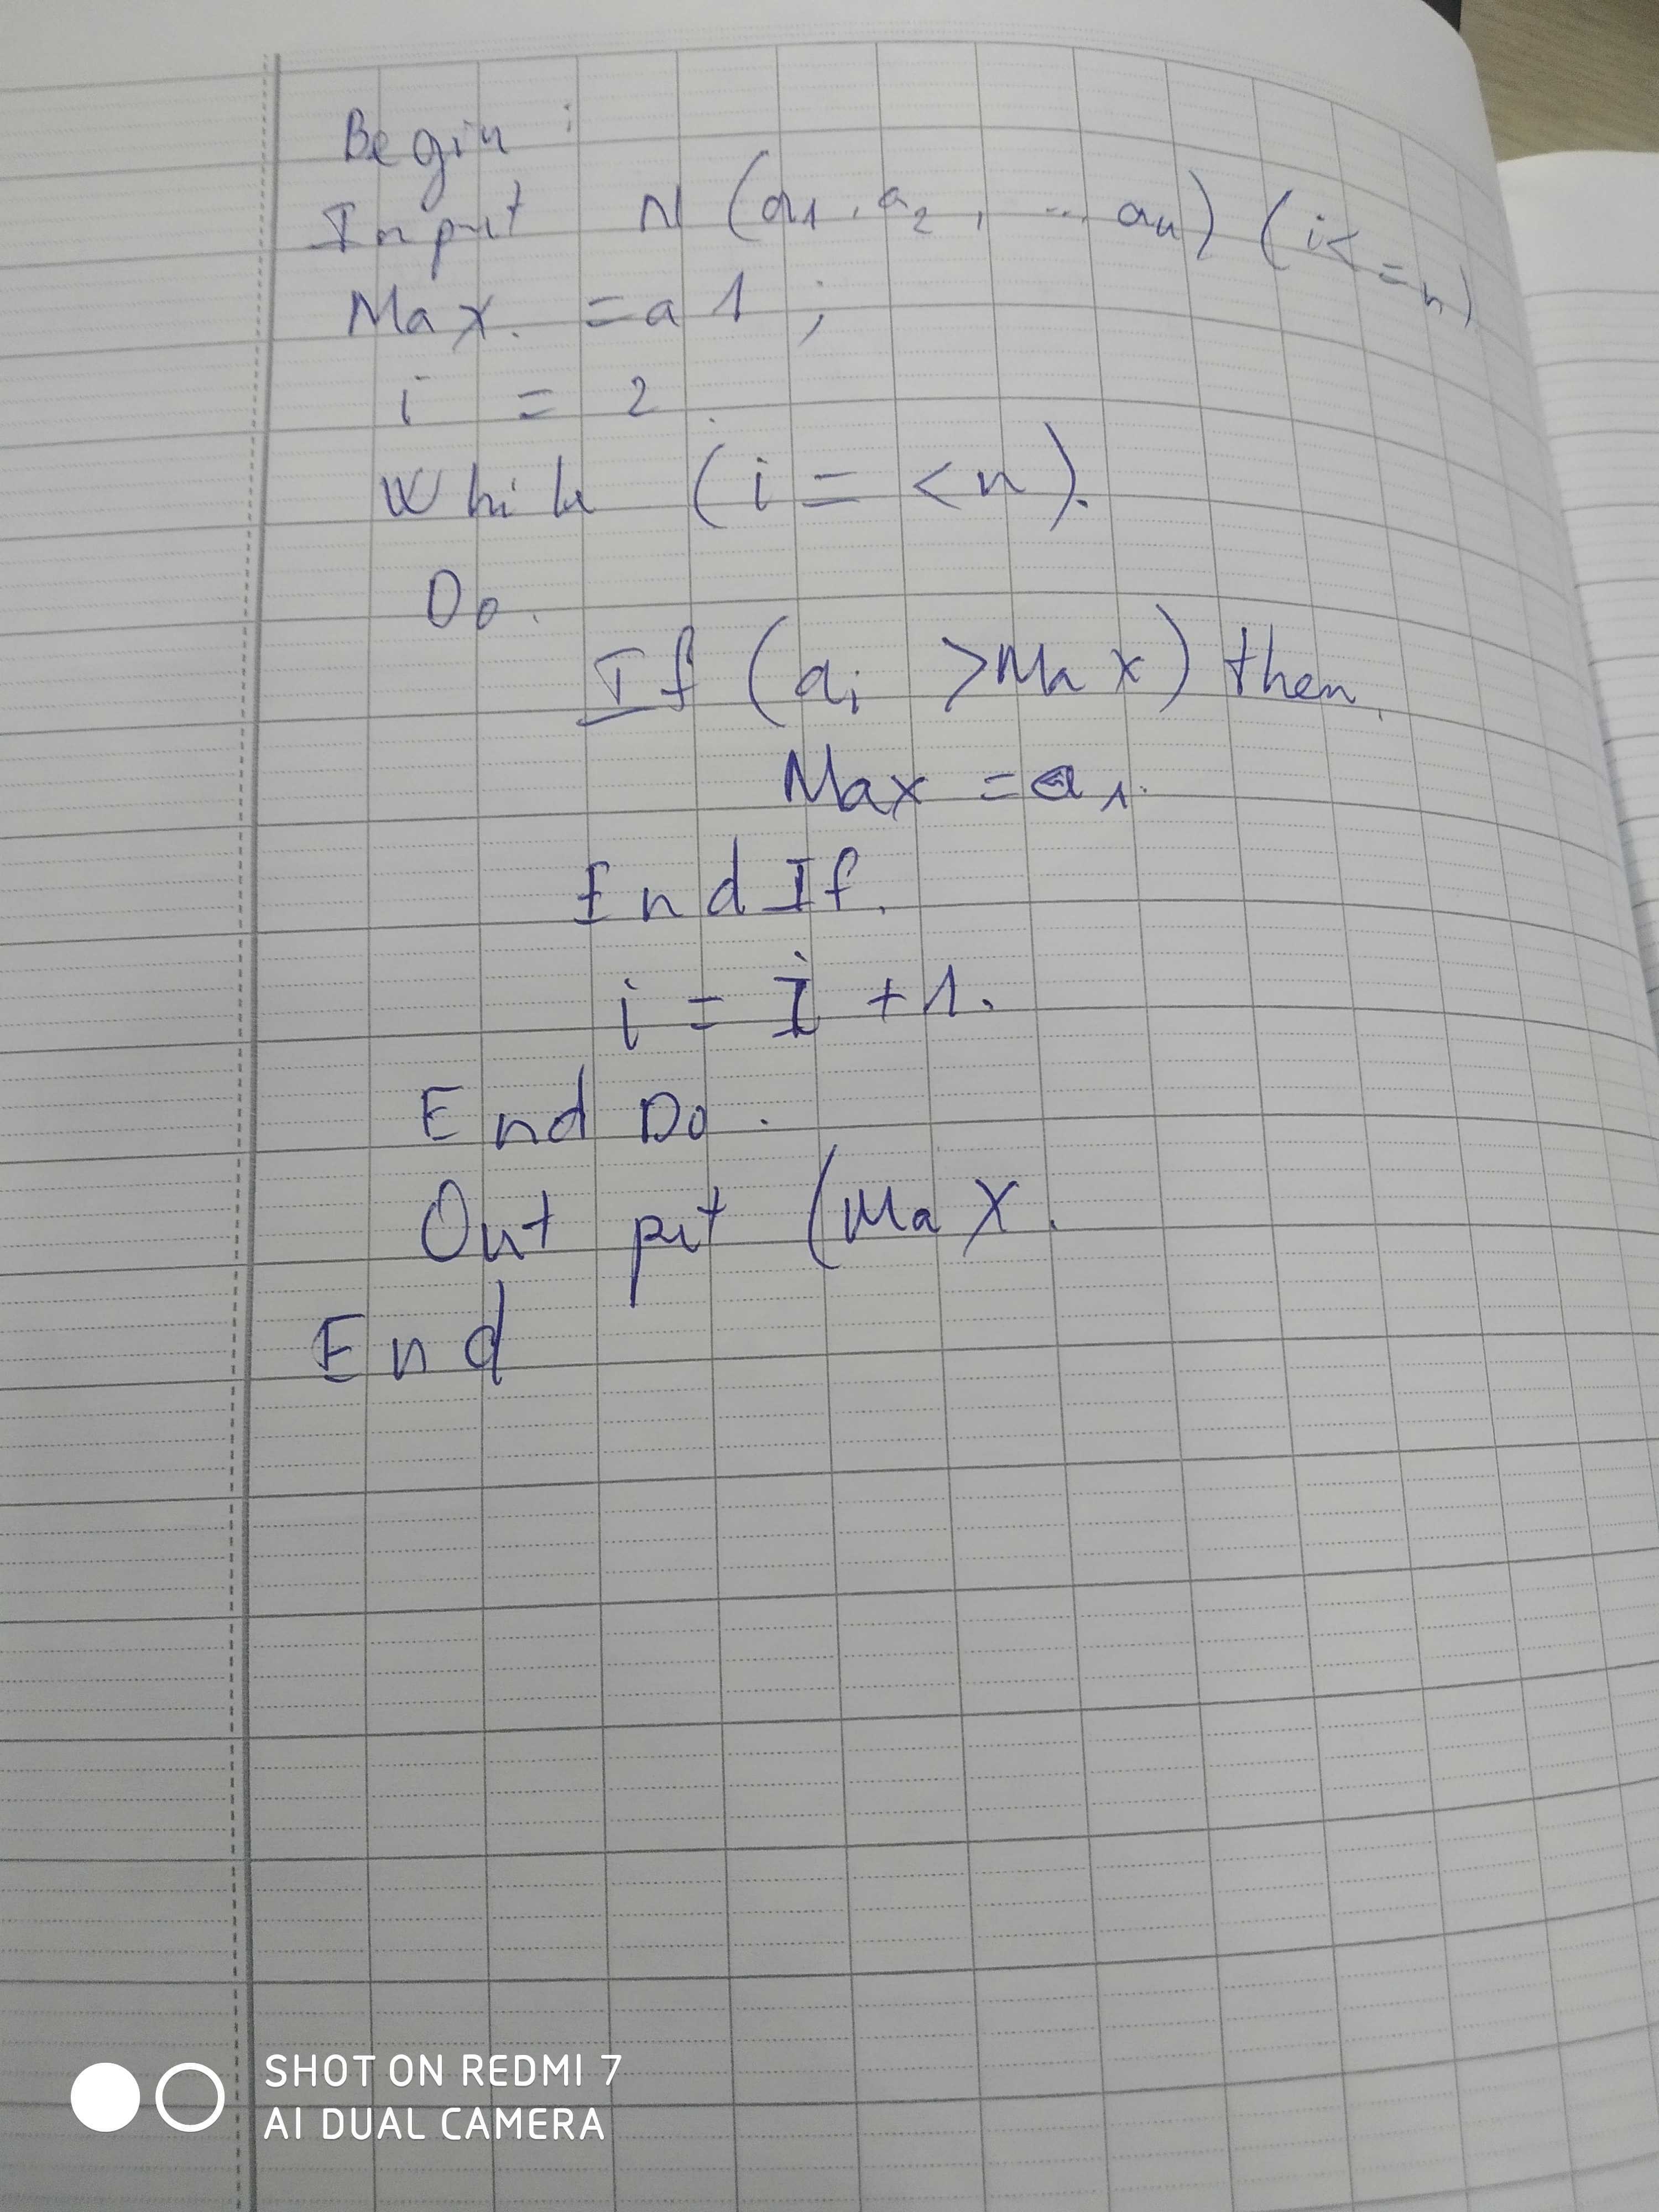 Begin :
Input N (a1, a2, ... an) (i<=n)
Max. = a 1 ;
i = 2
While (i = < n).
Do.
If (ai > Max) then.
Max = a1.
End If.
i = i + 1.
End Do.
Out put (Max.
End
SHOT ON REDMI 7
AI DUAL CAMERA